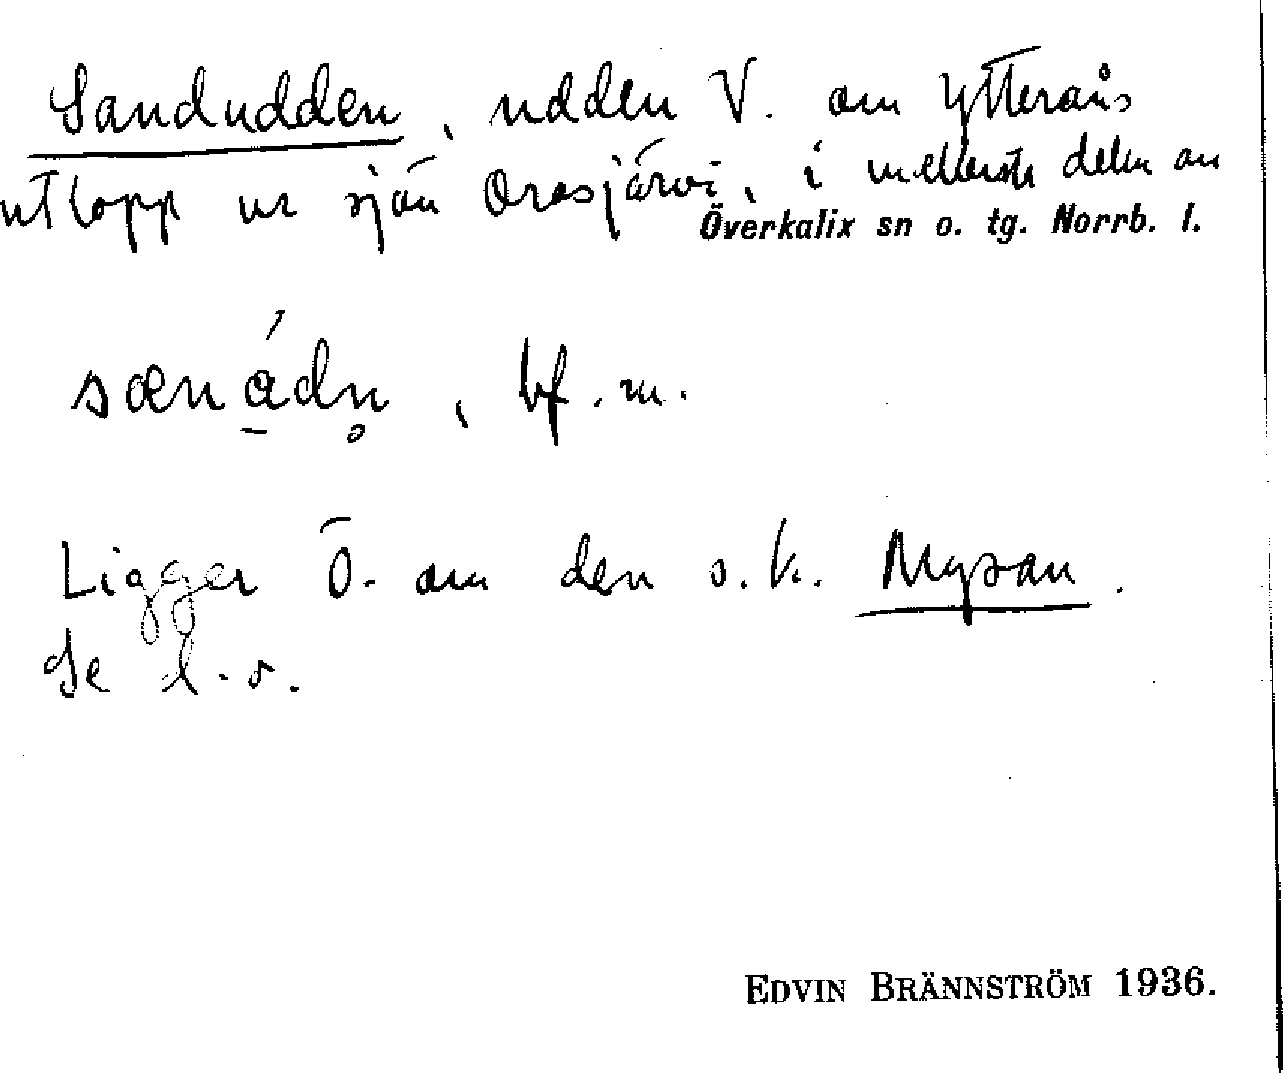 Sandudden, udden V. om Ytteråns
utlopp ur sjön Orasjärvi, i mellersta delen av
Överkalix sn o. tg. Norrb. l.
sænádn̥, bf. m.
Ligger Ö. om den s.k. Mysan.
Se d.o.
EDVIN BRÄNNSTRÖM 1936.